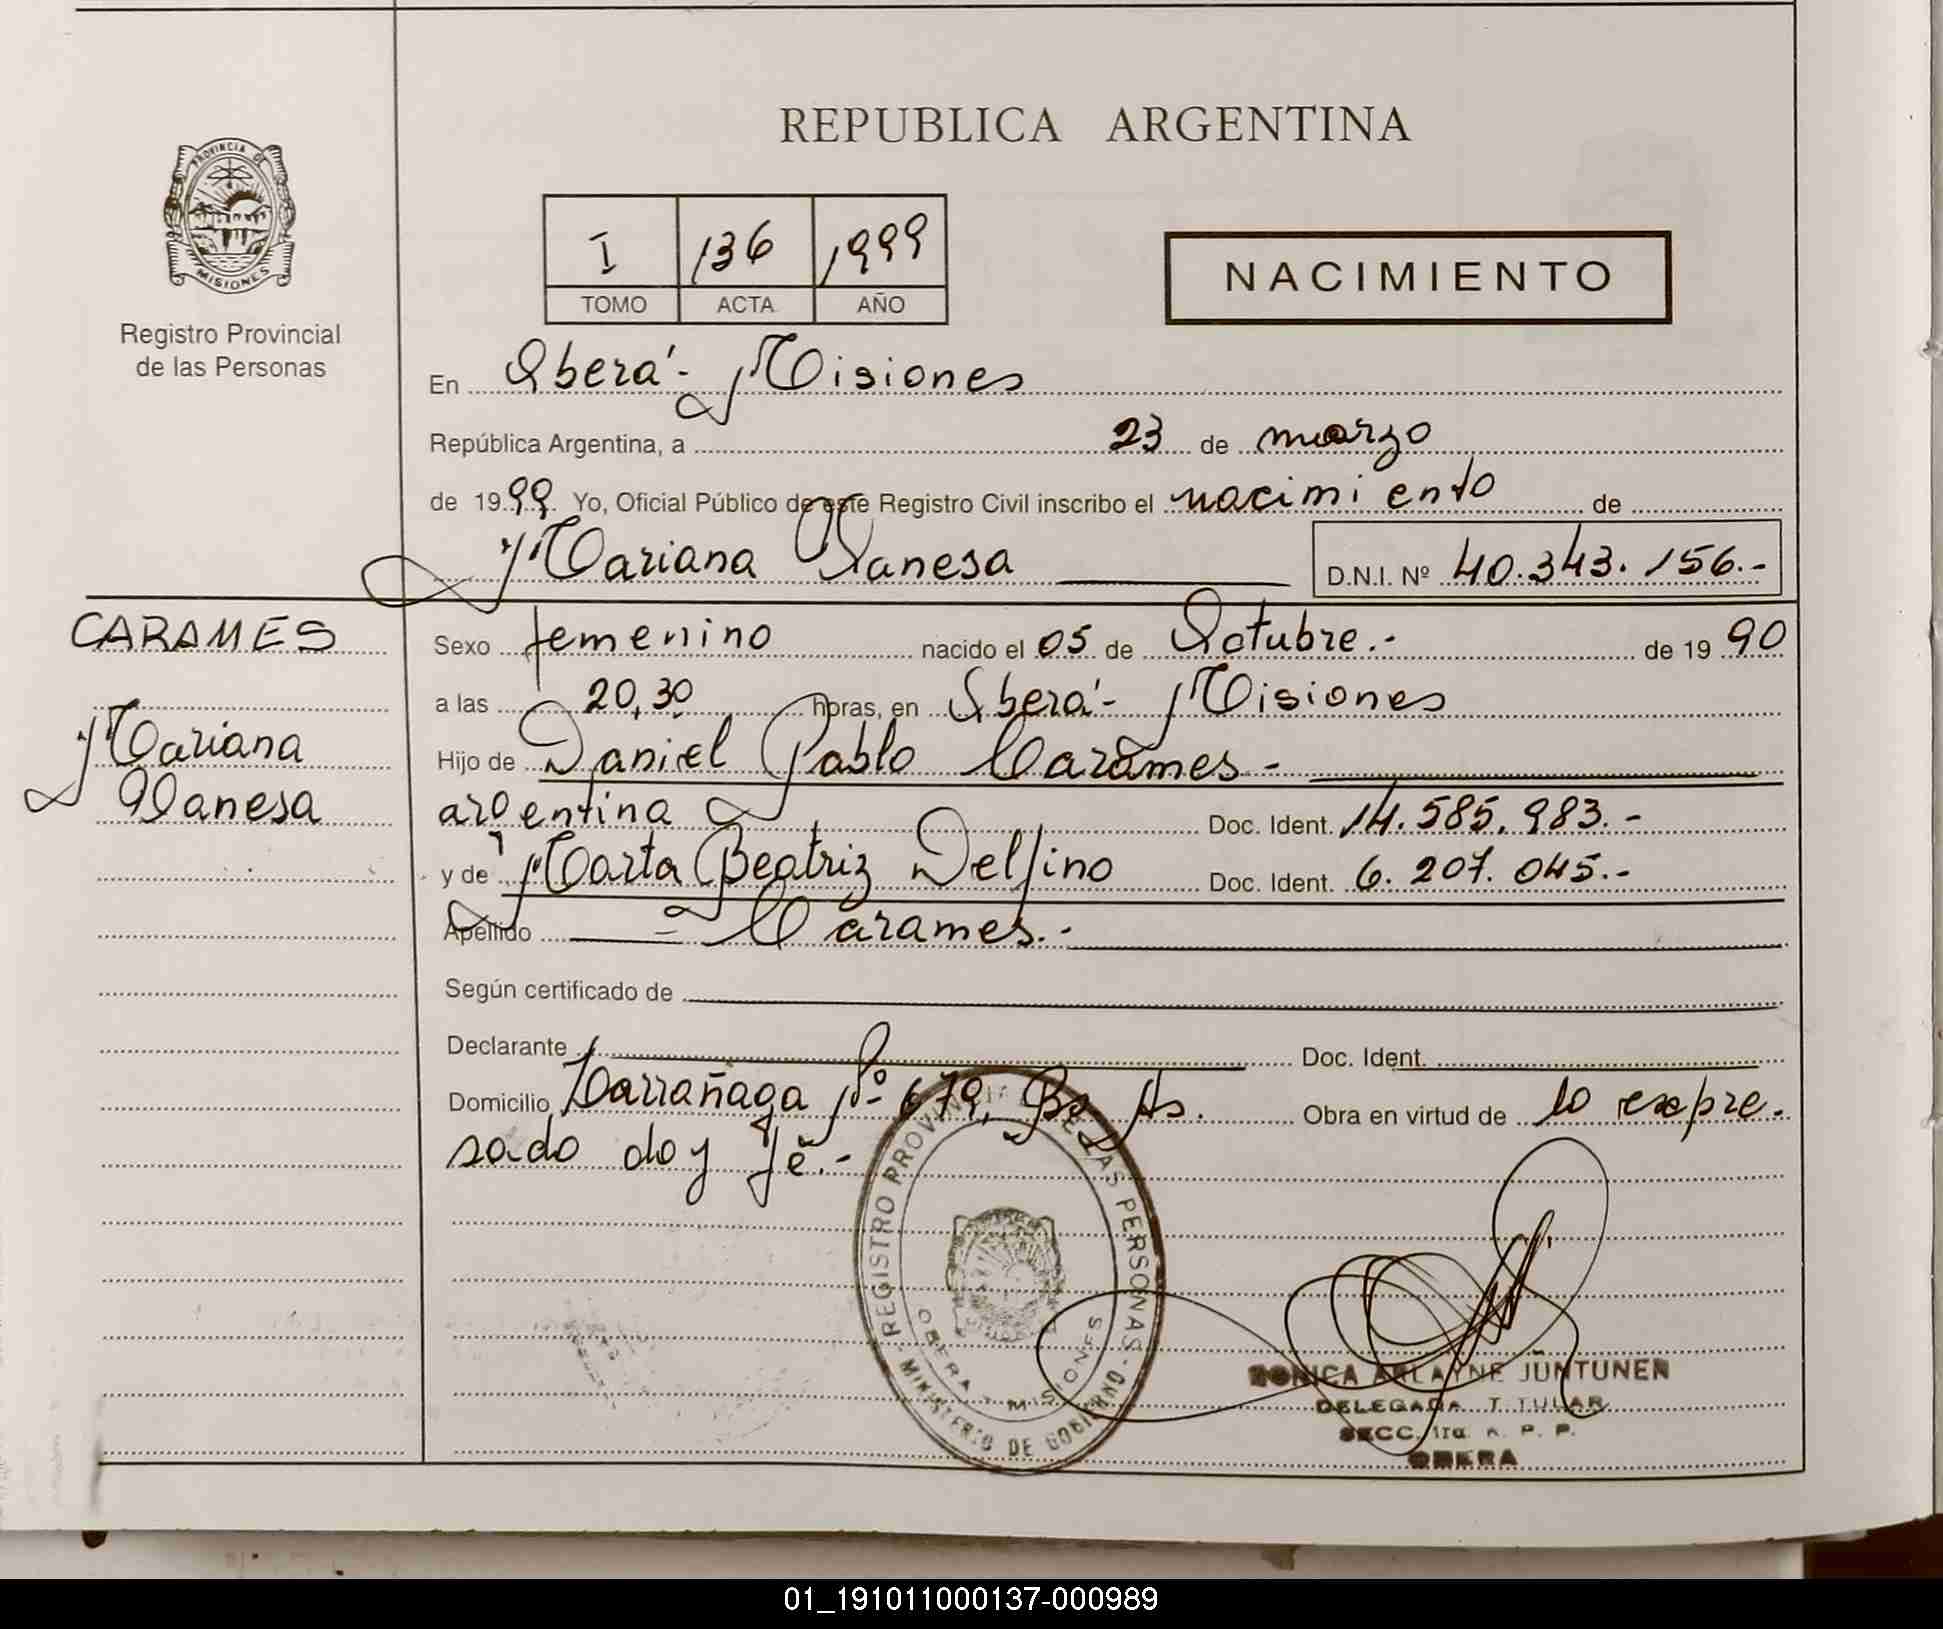 REPUBLICA ARGENTINA
PROVINCIA DE
MISIONES
Registro Provincial
de las Personas
I 136 1999
TOMO ACTA AÑO
NACIMIENTO
En Oberá - Misiones
República Argentina, a 23 de marzo
de 1999 Yo, Oficial Público de este Registro Civil inscribo el nacimiento de
Mariana Vanesa D.N.I. Nº 40.343.156.-
CARAMES
Mariana
Vanesa
Sexo femenino nacido el 05 de Octubre.- de 1990
a las 20,30 horas, en Oberá - Misiones
Hijo de Daniel Pablo Carames -
argentina Doc. Ident. 14.585.983.-
y de Marta Beatriz Delfino Doc. Ident. 6.207.045.-
Apellido = Carames.-
Según certificado de
Declarante Doc. Ident.
Domicilio Larrañaga Nº 679, Bs As. Obra en virtud de lo expre-
sado doy fé.-
REGISTRO PROVINCIAL DE LAS PERSONAS -
MINISTERIO DE GOBIERNO
OBERA - MISIONES
ARLAYNE JUNTUNEN
DELEGADA TITULAR
SECC. 1ra. R. P. P.
OBERA
01_191011000137-000989